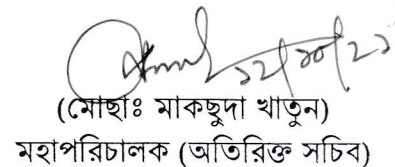 ১২/১০/২১
(মোছাঃ মাকছুদা খাতুন)
মহাপরিচালক (অতিরিক্ত সচিব)